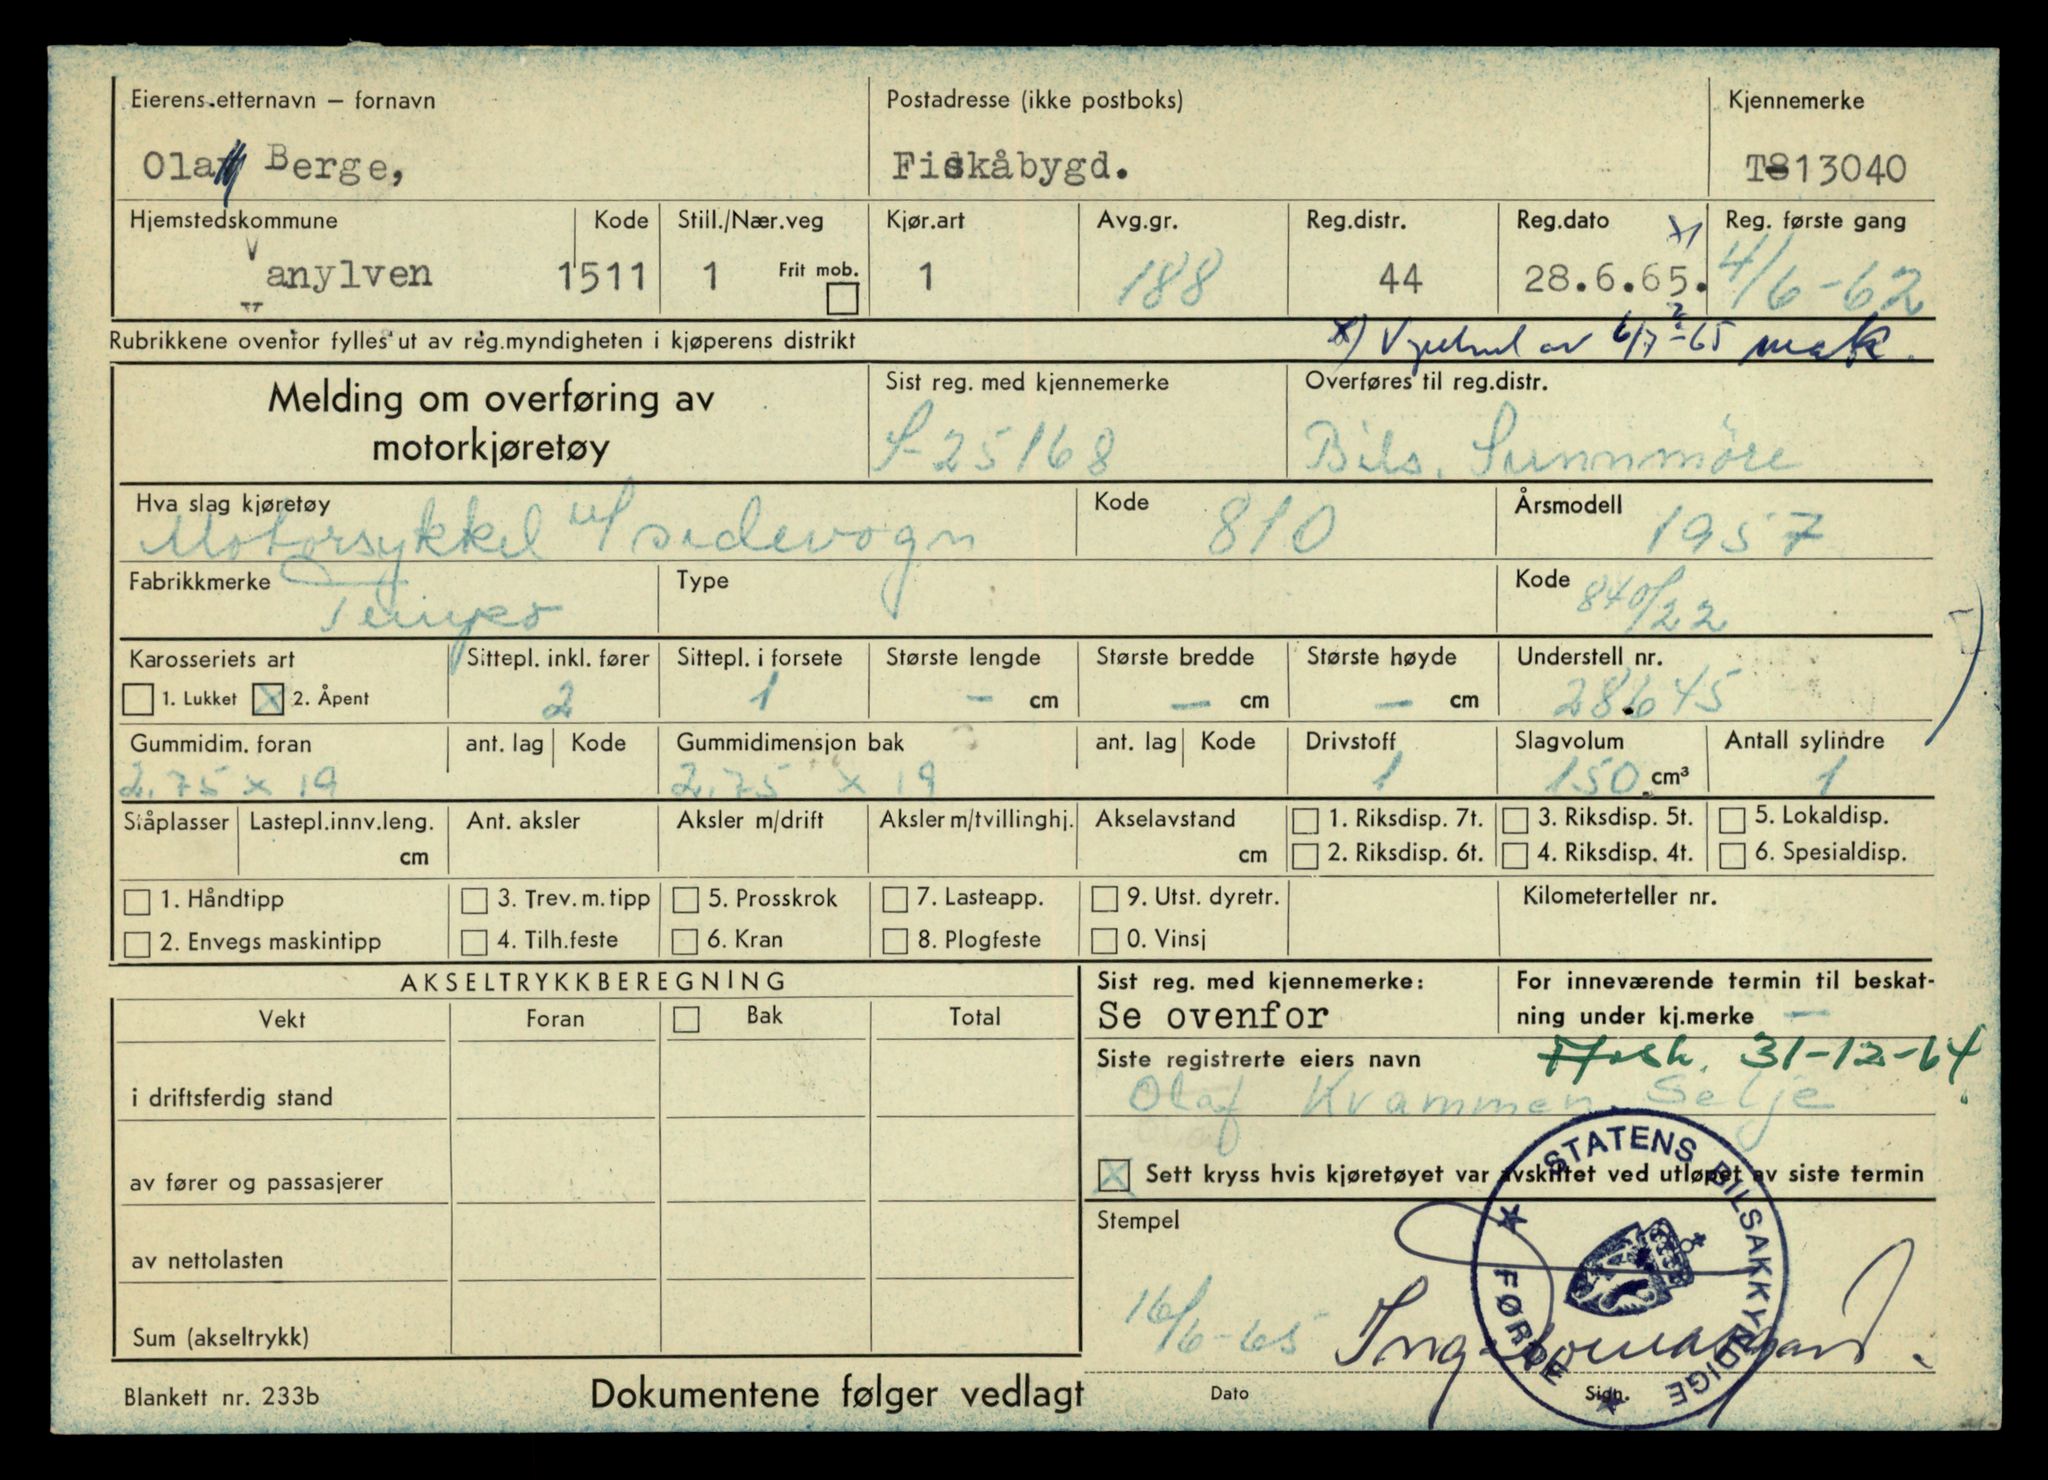 Eierens etternavn – fornavn
Postadresse (ikke postboks)
Kjennemerke
Ola Berge,
Fiskåbygd.
T-13040
Hjemstedskommune
Kode
Still./Nær.veg
Kjør.art
Avg.gr.
Reg.distr.
Reg.dato
x)
Reg. første gang
Vanylven
1511
1
Frit mob.
1
188
44
28.6.65.
4/6-62
Rubrikkene ovenfor fylles ut av reg.myndigheten i kjøperens distrikt
x) av 6/7-65
Melding om overføring av
motorkjøretøy
Sist reg. med kjennemerke
S-25168
Overføres til reg.distr.
Bils. Sunnmöre
Hva slag kjøretøy
Motorsykkel u/sidevogn
Kode
810
Årsmodell
1957
Fabrikkmerke
Tempo
Type
Kode
840/22
Karosseriets art
Sittepl. inkl. fører
Sittepl. i forsete
Største lengde
Største bredde
Største høyde
Understell nr.
1. Lukket
x 2. Åpent
2
1
– cm
– cm
– cm
28.645
Gummidim. foran
ant. lag
Kode
Gummidimensjon bak
ant. lag
Kode
Drivstoff
Slagvolum
Antall sylindre
2.75 x 19
2.75 x 19
1
150 cm³
1
Slåplasser
Lastepl.innv.leng.
Ant. aksler
Aksler m/drift
Aksler m/tvillinghj.
Akselavstand
1. Riksdisp. 7t.
3. Riksdisp. 5t.
5. Lokaldisp.
cm
cm
2. Riksdisp. 6t.
4. Riksdisp. 4t.
6. Spesialdisp.
1. Håndtipp
3. Trev. m. tipp
5. Prosskrok
7. Lasteapp.
9. Utst. dyretr.
Kilometerteller nr.
2. Envegs maskintipp
4. Tilh.feste
6. Kran
8. Plogfeste
0. Vinsj
AKSELTRYKKBEREGNING
Vekt
Foran
Bak
Total
i driftsferdig stand
av fører og passasjerer
av nettolasten
Sum (akseltrykk)
Sist reg. med kjennemerke:
Se ovenfor
For inneværende termin til beskat-
ning under kj.merke –
Siste registrerte eiers navn
31-12-64
Olaf Kvammen, Selje
x Sett kryss hvis kjøretøyet var avskiltet ved utløpet av siste termin
Stempel
STATENS BILSAKKYNDIGE
FØRDE
16/6-65
Dato
Sign.
Blankett nr. 233b
Dokumentene følger vedlagt